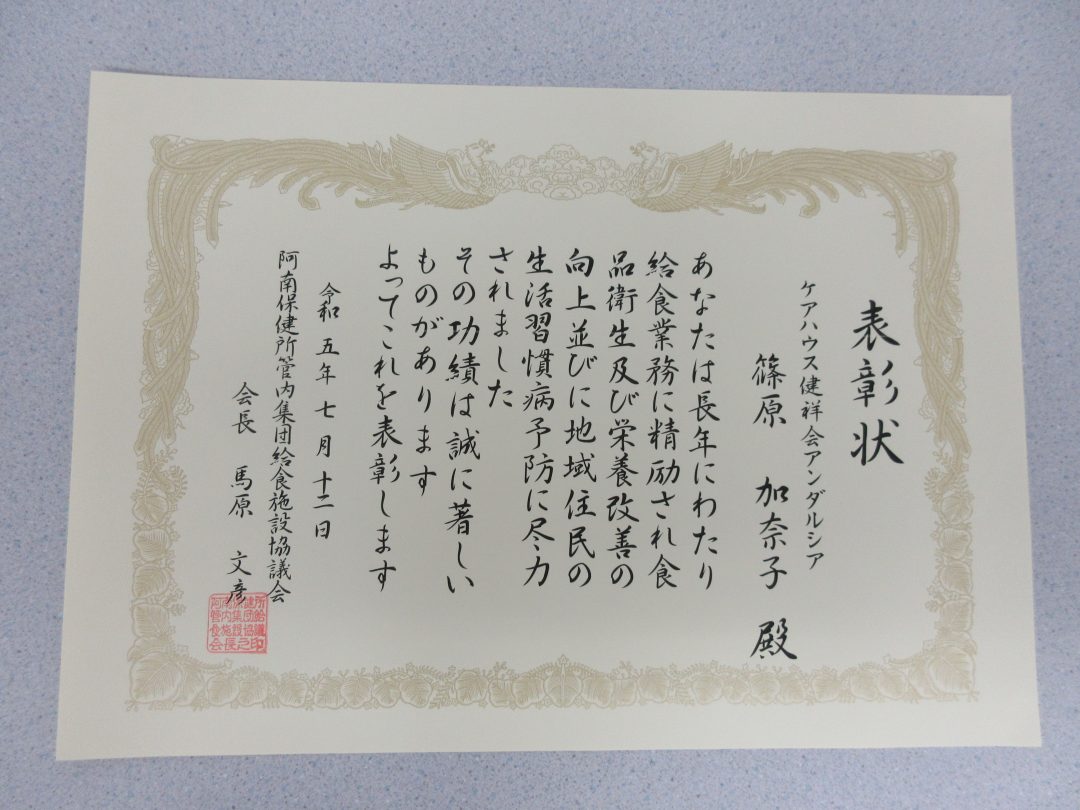 表彰状
ケアハウス健祥会アンダルシア
篠原 加奈子 殿
あなたは長年にわたり
給食業務に精励され食
品衛生及び栄養改善の
向上並びに地域住民の
生活習慣病予防に尽力
されました
その功績は誠に著しい
ものがあります
よってこれを表彰します
令和五年七月十二日
阿南保健所管内集団給食施設協議会
会長 馬原 文彦